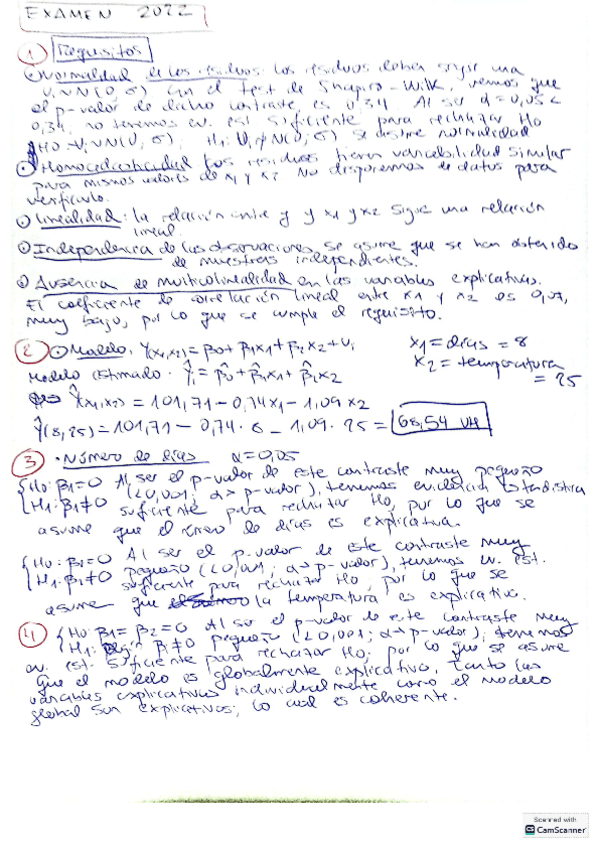 EXAMEN 2022
1 Requisitos
Normalidad de los residuos: los residuos deben seguir una
U~N(0, σ) Con el test de Shapiro-Wilk, vemos que
el p-valor de dicho contraste, es 0,34. Al ser α=0,05<
0,34, no tenemos ev. est suficiente para rechazar Ho
Ho → U~N(0, σ), H1: U≁N(0, σ) Se asume normalidad
Homocedasticidad Los residuos tienen variabilidad similar
para mismos valores de x1 y x2 No disponemos de datos para
verificarlo.
Linealidad: la relación entre y y x1 y x2 sigue una relación
lineal.
Independencia de las observaciones, se asume que se han obtenido
de muestras independientes.
Ausencia de multicolinealidad en las variables explicativas.
El coeficiente de correlación lineal entre x1 y x2 es 0,07,
muy bajo, por lo que se cumple el requisito.
2 Modelo. Y(x1,x2) = β0 + β1x1 + β2x2 + Ui
x1 = días = 8
Modelo estimado. Ŷi = β̂0 + β̂1x1 + β̂2x2
x2 = temperatura = 25
Ŷ(x1,x2) = 101,71 - 0,74x1 - 1,09x2
Ŷ(8,25) = 101,71 - 0,74 · 8 - 1,09 · 25 = 68,54 UH
3 · Número de días α=0,05
{Ho: β1=0 Al ser el p-valor de este contraste muy pequeño
H1: β1≠0 (<0,001; α > p-valor), tenemos evidencia estadística
suficiente para rechazar Ho, por lo que se
asume que el número de días es explicativa.
{Ho: β2=0 Al ser el p-valor de este contraste muy
H1: β2≠0 pequeño (<0,001; α > p-valor), tenemos ev. est.
suficiente para rechazar Ho, por lo que se
asume que la temperatura es explicativa.
4 {Ho: β1 = β2 = 0 Al ser el p-valor de este contraste muy
H1: algún βi≠0 pequeño (<0,001; α > p-valor), tenemos
ev. est. suficiente para rechazar Ho, por lo que se asume
que el modelo es globalmente explicativo. Tanto las
variables explicativas individualmente como el modelo
global son explicativos, lo cual es coherente.
Scanned with
CS CamScanner